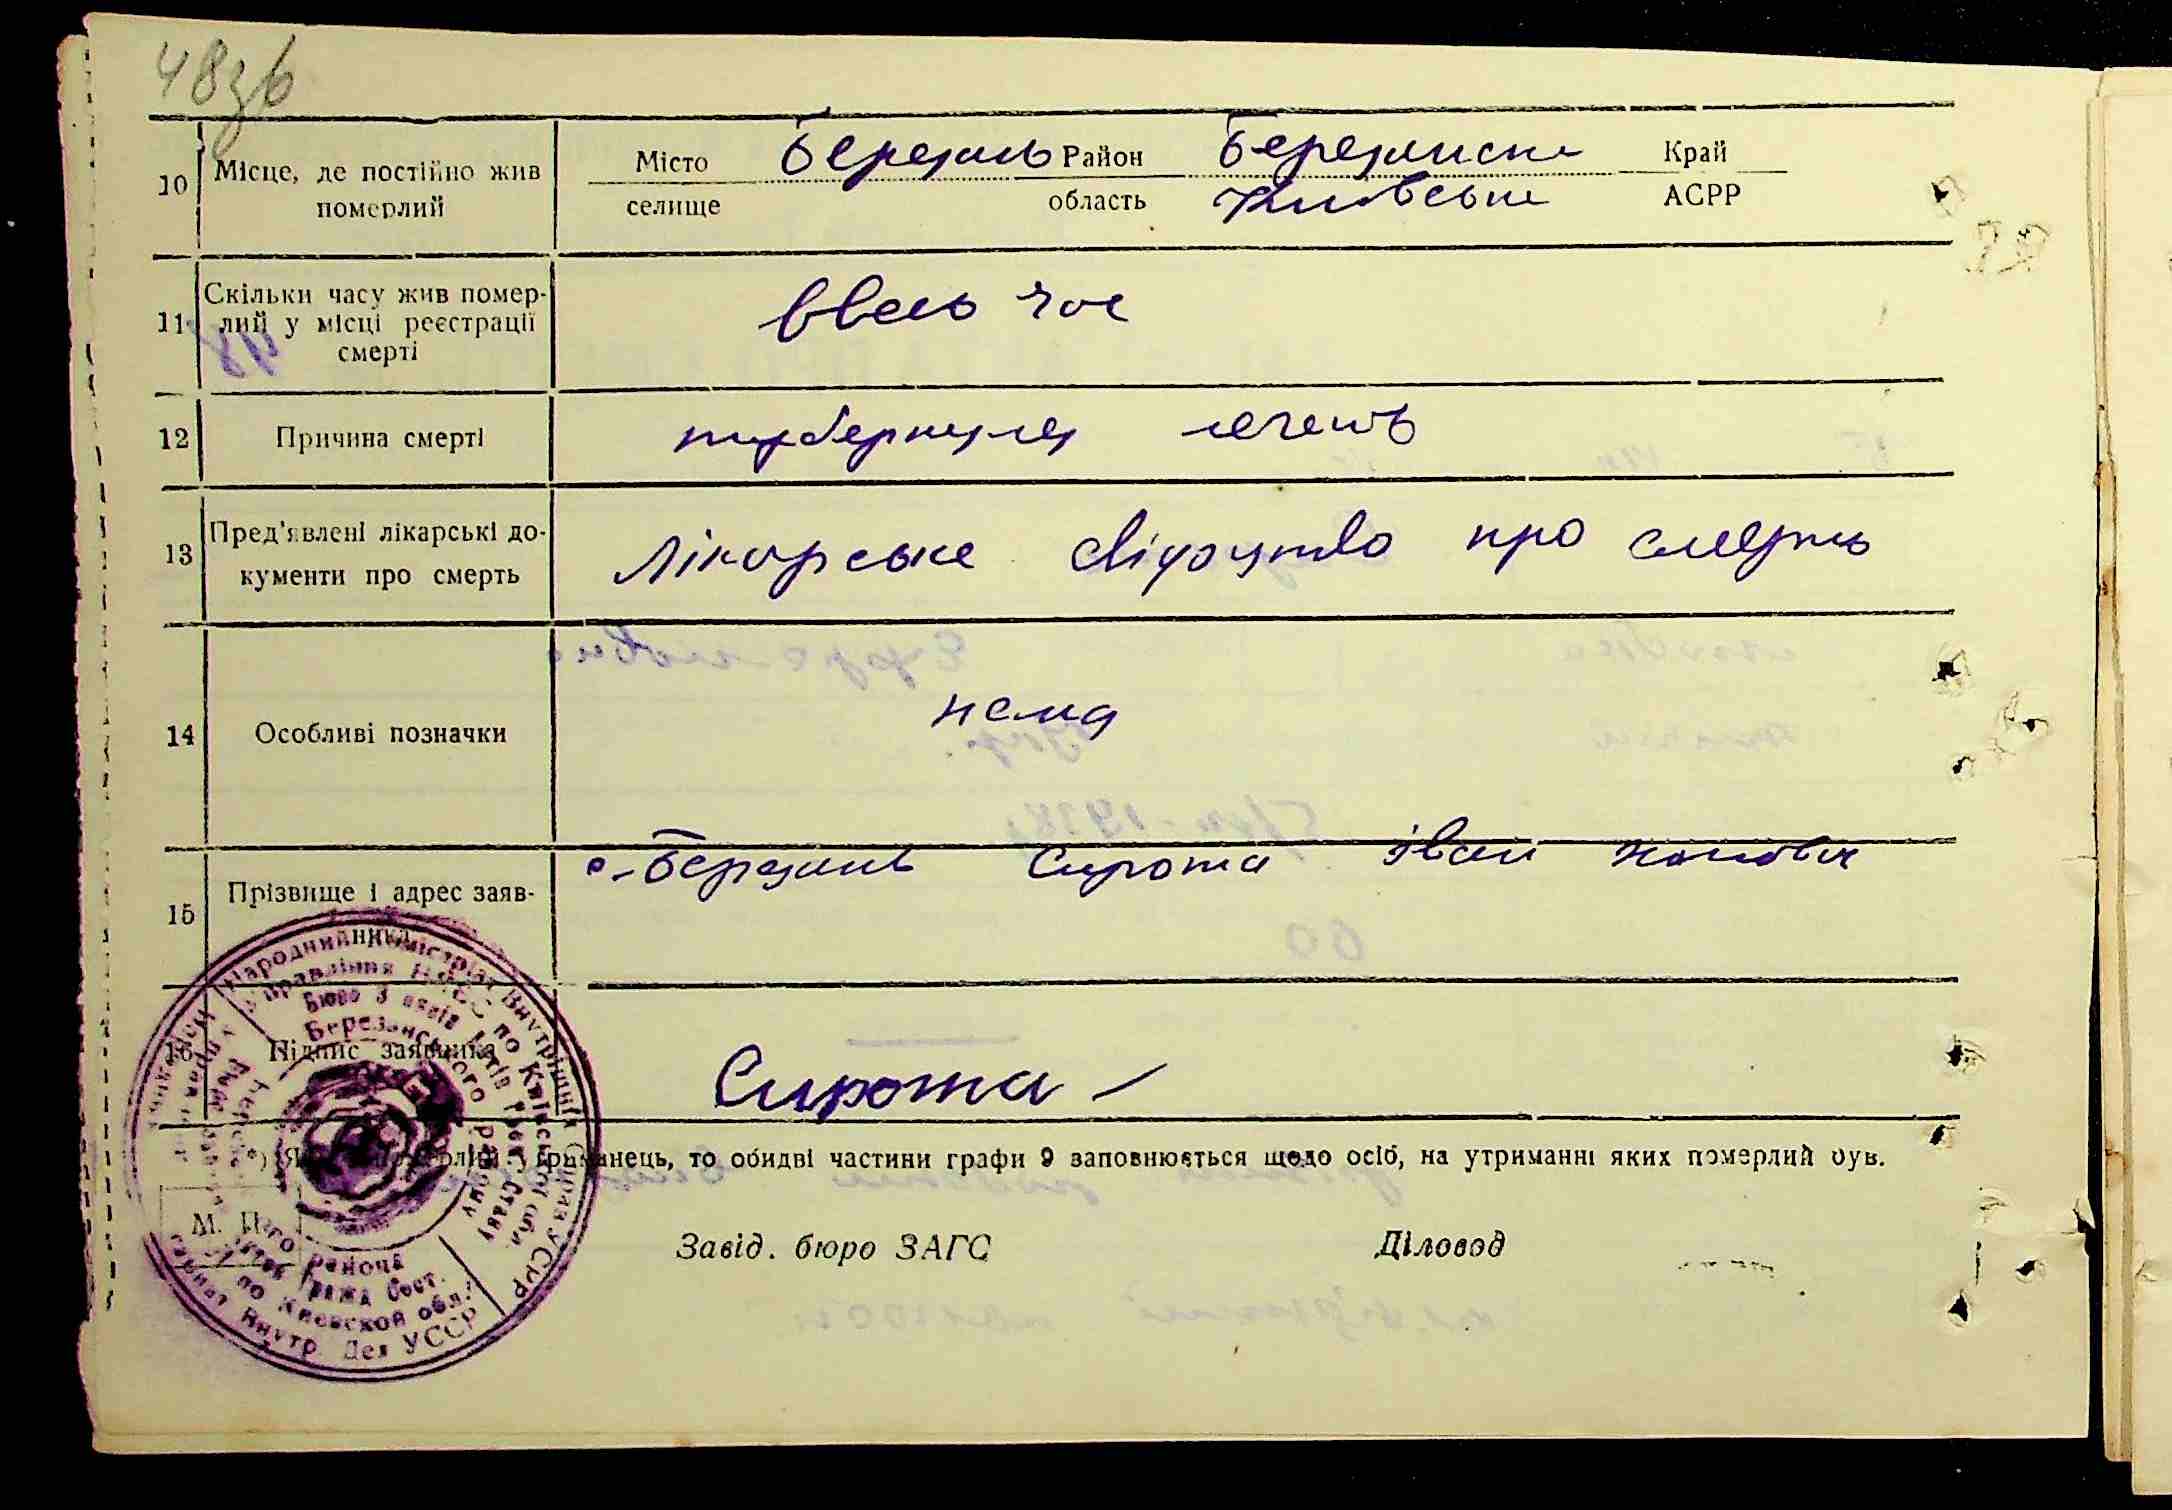 48зв
10 Місце, де постійно жив померлий
Місто Березань Район Березанськ Край
селище область Київська АСРР
11 Скільки часу жив помер-
лий у місці реєстрації
смерті
ввесь час
12 Причина смерті туберкулез легень
13 Пред'явлені лікарські до-
кументи про смерть
Лікарське свідоцтво про смерть
14 Особливі позначки нема
15 Прізвище і адрес заяв-
ника
с. Березань Сирота Іван
16 Підпис заявника Сирота
утриманець, то обидві частини графи 9 заповнюється щодо осіб, на утриманні яких померлий був.
М. П.
Завід. бюро ЗАГС Діловод
Народний Комісаріат Внутрішніх Справ УСРР
Управління НКВС по Київській обл.
Бюро Запів Актів Гром. Стану
Березанського району
района
Актов Гражд. Сост.
по Киевской обл.
Внутр. Дел УССР